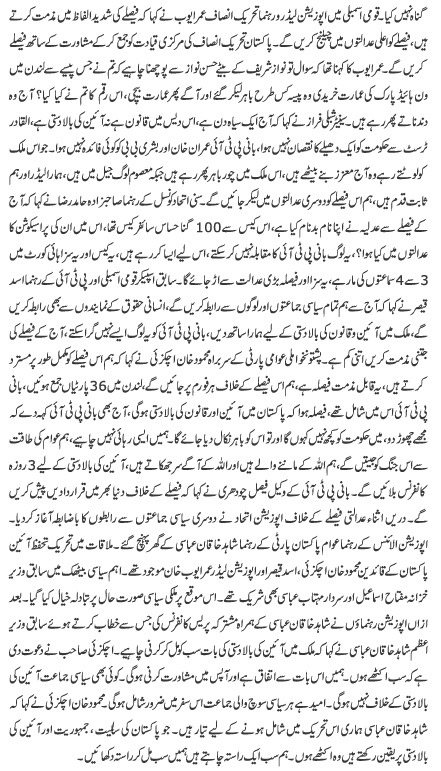 گناہ نہیں کیا۔ قومی اسمبلی میں اپوزیشن لیڈر و رہنما تحریک انصاف عمر ایوب نے کہا کہ فیصلے کی شدید الفاظ میں مذمت کرتے
ہیں، فیصلے کو اعلیٰ عدالتوں میں چیلنج کریں گے۔ پاکستان تحریک انصاف کی مرکزی قیادت کو جمع کر کے مشاورت کے ساتھ فیصلے
کریں گے۔ عمر ایوب کا کہنا تھا کہ سوال تو نواز شریف کے بیٹے حسن نواز سے پوچھنا چاہیے کہ تم نے جس پیسے سے لندن میں
ون ہائیڈ پارک کی عمارت خریدی وہ پیسہ کس طرح باہر لیکر گئے اور آگے پھر عمارت بیچی، اس رقم کا تم نے کیا کیا؟ آج وہ
دندناتے پھر رہے ہیں۔ سینیٹر شبلی فراز نے کہا کہ آج ایک سیاہ دن ہے، اس دیس میں قانون ہے نہ آئین کی بالادستی، القادر
ٹرسٹ سے حکومت کو ایک دھیلے کا نقصان نہیں ہوا، بانی پی ٹی آئی عمران خان اور بشریٰ بی بی کو کوئی فائدہ نہیں ہوا، جو اس ملک
کو لوٹتے رہے وہ آج معزز بنے بیٹھے ہیں، اس ملک میں چور باہر پھر رہے ہیں جبکہ معصوم لوگ جیل میں ہیں، ہمارا لیڈر اور ہم
ثابت قدم ہیں، ہم اس فیصلے کو دوسری عدالتوں میں لیکر جائیں گے۔ سنی اتحاد کونسل کے رہنما صاحبزادہ حامد رضا نے کہا کہ آج
کے فیصلے سے عدلیہ نے اپنا نام بدنام کیا ہے، اس کیس سے 100 گنا حساس سائفر کیس تھا، اس میں ان کی پراسیکوشن کا
عدالتوں میں کیا ہوا؟، یہ لوگ بانی پی ٹی آئی کا مقابلہ نہیں کر سکتے، اس لیے ایسا کر رہے ہیں، یہ کیس اور یہ سزا ہائی کورٹ میں
3 سے 4 سماعتوں کی مار ہے، یہ سزا اور فیصلہ بڑی عدالت سے اڑ جائے گا۔ سابق اسپیکر قومی اسمبلی اور پی ٹی آئی کے رہنما اسد
قیصر نے کہا کہ آج سے ہم تمام سیاسی جماعتوں اور لوگوں سے رابطہ کریں گے، انسانی حقوق کے نمائندوں سے بھی رابطہ کریں
گے، ملک میں آئین و قانون کی بالادستی کے لیے ہمارا ساتھ دیں، بانی پی ٹی آئی کو یہ لوگ ایسے نہیں گرا سکتے، آج کے فیصلے کی
جتنی مذمت کریں اتنی کم ہے۔ پشتونخوا ملی عوامی پارٹی کے سربراہ محمود خان اچکزئی نے کہا کہ ہم اس فیصلے کو مکمل طور پر مسترد
کرتے ہیں، یہ قابل مذمت فیصلہ ہے، ہم اس فیصلے کے خلاف ہر فورم پر جائیں گے، لندن میں 36 پارٹیاں جمع ہوئیں، بانی
پی ٹی آئی اس میں شامل تھے، فیصلہ ہوا کہ پاکستان میں آئین اور قانون کی بالادستی ہوگی، آج بھی بانی پی ٹی آئی کہہ دے کہ
مجھے چھوڑ دو، میں حکومت کو کچھ نہیں کہوں گا اور تو اس کو باہر نکال دیا جائے گا۔ ہمیں ایسی رہائی نہیں چاہیے، ہم عوام کی طاقت
سے اس جنگ کو جیتیں گے، ہم اللہ کے ماننے والے ہیں اور اللہ کے آگے سر جھکاتے ہیں، آئین کی بالادستی کے لیے 3 روزہ
کانفرنس بلائیں گے۔ بانی پی ٹی آئی کے وکیل فیصل چودھری نے کہا کہ فیصلے کے خلاف دنیا بھر میں قراردادیں پیش کریں
گے۔ دریں اثناء عدالتی فیصلے کے خلاف اپوزیشن اتحاد نے دوسری سیاسی جماعتوں سے رابطوں کا باضابطہ آغاز کر دیا۔
اپوزیشن الائنس کے رہنما عوام پاکستان پارٹی کے رہنما شاہد خاقان عباسی کے گھر پہنچ گئے۔ ملاقات میں تحریک تحفظ آئین
پاکستان کے قائدین محمود خان اچکزئی، اسد قیصر اور اپوزیشن لیڈر عمر ایوب خان موجود تھے۔ اہم سیاسی بیٹھک میں سابق وزیر
خزانہ مفتاح اسماعیل اور سردار مہتاب عباسی بھی شریک تھے۔ اس موقع پر ملکی سیاسی صورت حال پر تبادلہ خیال کیا گیا۔ بعد
ازاں اپوزیشن رہنماؤں نے شاہد خاقان عباسی کے ہمراہ مشترکہ پریس کانفرنس کی جس سے خطاب کرتے ہوئے سابق وزیر
اعظم شاہد خاقان عباسی نے کہا کہ ملک میں آئین کی بالادستی کی بات سب کو مل کر کرنی چاہیے۔ اچکزئی صاحب نے دعوت دی
ہے کہ سب اکٹھے ہوں۔ ہمیں اس بات سے اتفاق ہے اور آپس میں مشاورت کرنی ہوگی۔ کوئی بھی سیاسی جماعت آئین کی
بالادستی کے خلاف نہیں ہوگی۔ امید ہے ہر سیاسی سوچ والی جماعت اس سفر میں ضرور شامل ہوگی۔ محمود خان اچکزئی نے کہا کہ
شاہد خاقان عباسی ہماری اس تحریک میں شامل ہونے کے لیے تیار ہیں۔ جو پاکستان کی سالمیت، جمہوریت اور آئین کی
بالادستی پر یقین رکھتے ہیں وہ اکٹھے ہوں۔ ہم سب ایک راستہ چاہتے ہیں ہمیں سب مل کر راستہ دکھائیں۔